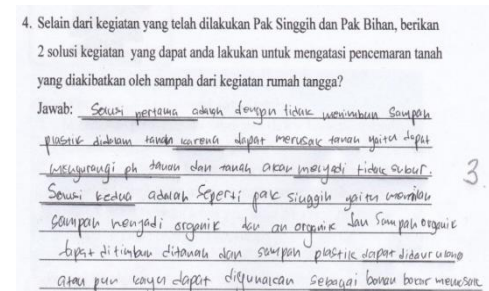 4. Selain dari kegiatan yang telah dilakukan Pak Singgih dan Pak Bihan, berikan
2 solusi kegiatan yang dapat anda lakukan untuk mengatasi pencemaran tanah
yang diakibatkan oleh sampah dari kegiatan rumah tangga?
Jawab: Solusi pertama adalah dengan tidak menimbun sampah
plastik didalam tanah karena dapat merusak tanah yaitu dapat
mengurangi ph tanah dan tanah akan menjadi tidak subur.
3
Solusi kedua adalah seperti pak singgih yaitu memilah
sampah menjadi organik dan an organik dan sampah organik
dapat ditimbun ditanah dan sampah plastik dapat didaur ulang
atau pun kayu dapat digunakan sebagai bahan bakar memasak